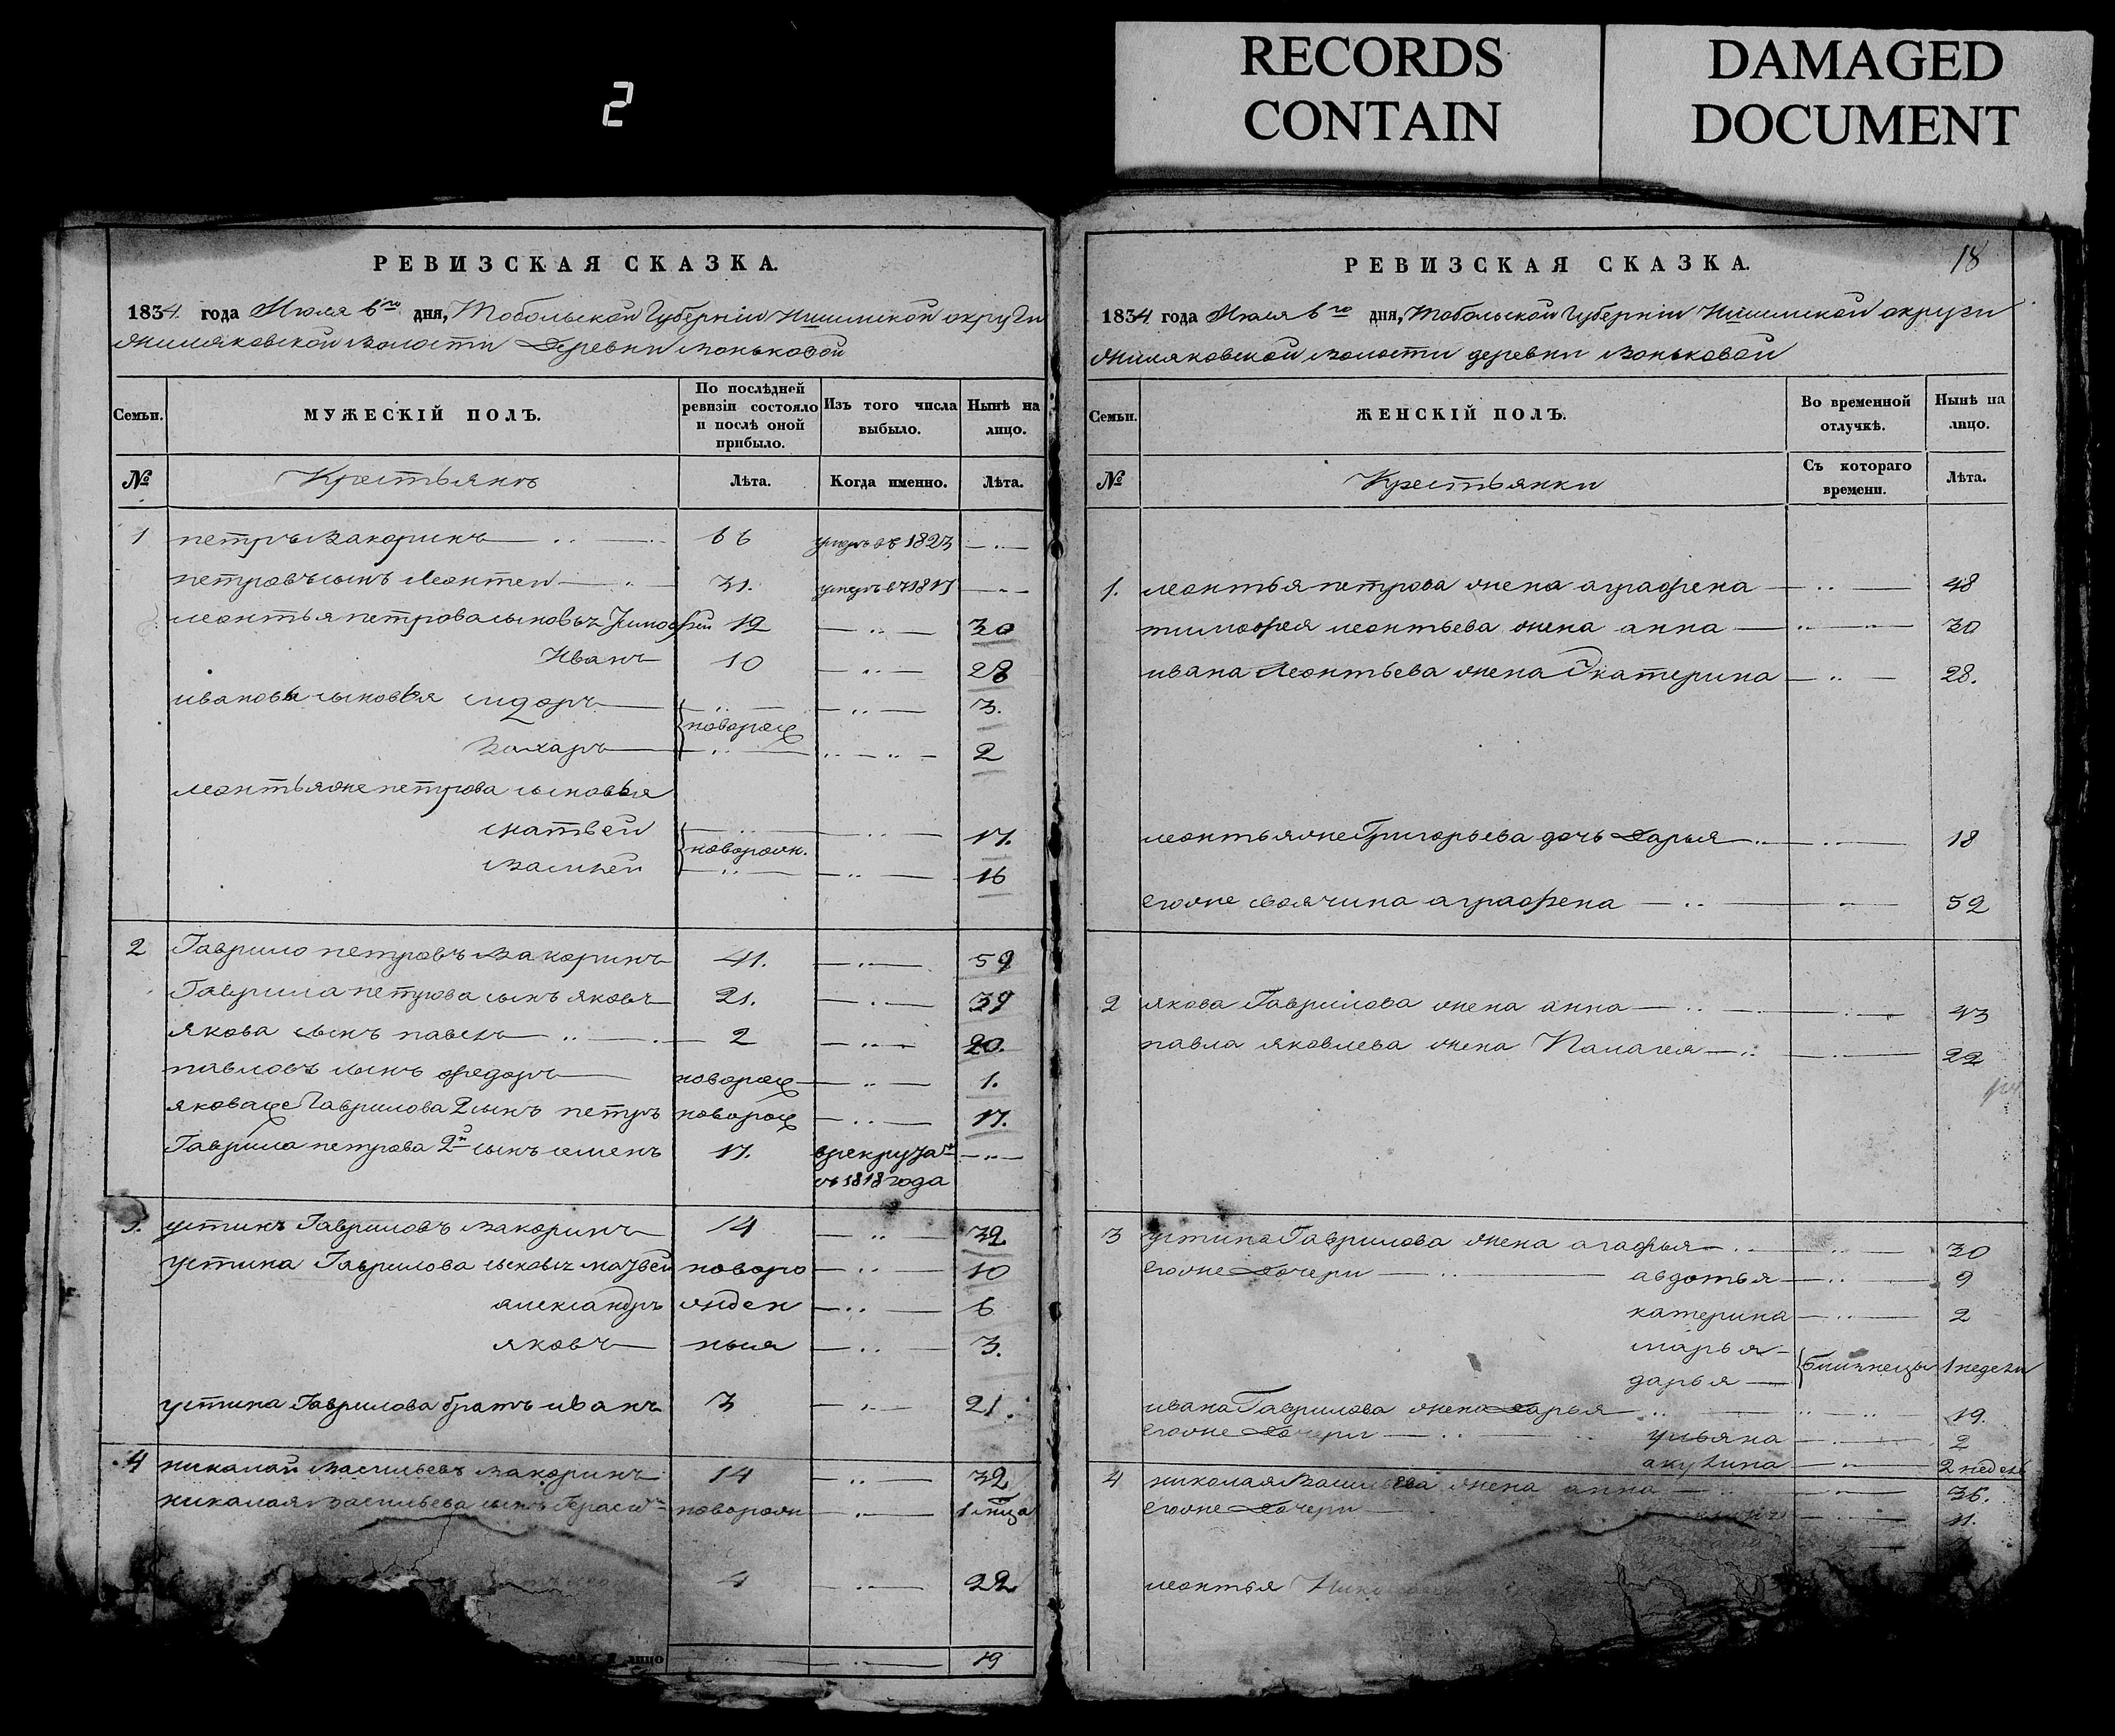 2
RECORDS
CONTAIN
DAMAGED
DOCUMENT
РЕВИЗСКАЯ СКАЗКА.
1834. года Июля 6го дня, Тобольской Губерніи Ишимской округи
Жиляковской Волости Деревни Воньковой
Семьи.
МУЖЕСКІЙ ПОЛЪ.
По послѣдней ревизіи состояло и послѣ оной прибыло.
Изъ того числа выбыло.
Нынѣ на лицо.
№
Крестьянъ
Лѣта.
Когда именно.
Лѣта.
1 петръ Вакоринъ 66 умеръ въ 1823
петровъ сынъ Леонтеи 31. умеръ в
леонтья петрова сыновья Тимофеи 12 30
Иванъ 10 28
ивановы сыновья сидоръ 3.
новорож
Захаръ 2
леонтья же петрова сыновья
матвеи 17.
новорожд.
Василеи 16
2 Гаврило петровъ Вакоринъ 41. 59
Гаврила петрова сынъ яковъ 21. 39
якова сынъ павелъ 2 20.
павловъ сынъ федоръ новорож 1.
якова же Гаврилова 2 сынъ петръ новорож 17.
Гаврила петрова 2й сынъ семенъ 17. врекрута
съ 1818 года
3. устинъ Гавриловъ Вакоринъ 14 32
устина Гаврилова сыновья матвеи новоро 10
александръ жден 6
яковъ ныя 3.
устина Гаврилова братъ иванъ 3 21.
4 николаи Васильевъ Вакоринъ 14 32
николая Васильева сынъ Герасим новорожд 1 мца
4 22
лицо 19
18
РЕВИЗСКАЯ СКАЗКА.
1834 года Июля 6го дня, Тобольской Губерніи Ишимской округи
Жиляковской Волости деревни Воньковой
Семьи.
ЖЕНСКІЙ ПОЛЪ.
Во временной отлучкѣ.
Нынѣ на лицо.
№
Крестьянки
Съ котораго времени.
Лѣта.
1. леонтья петрова жена аграфена 48
тимофея леонтьева жена анна 30
ивана Леонтьева жена Екатерина 28.
леонтья же Григорьева дочь Дарья 18
его же своячина аграфена 52
2 якова Гаврилова жена анна 43
павла яковлева жена Палагея 22
3 устина Гаврилова жена агафья 30
его же Дочери авдотья 9
катерина 2
марья
близнецы 1 недели
дарья
ивана Гаврилова жена Дарья 19.
его же Дочери ульяна 2
акулина 2 недель
4 николая Васильева жена анна 35.
его же Дочери 11.
леонтья